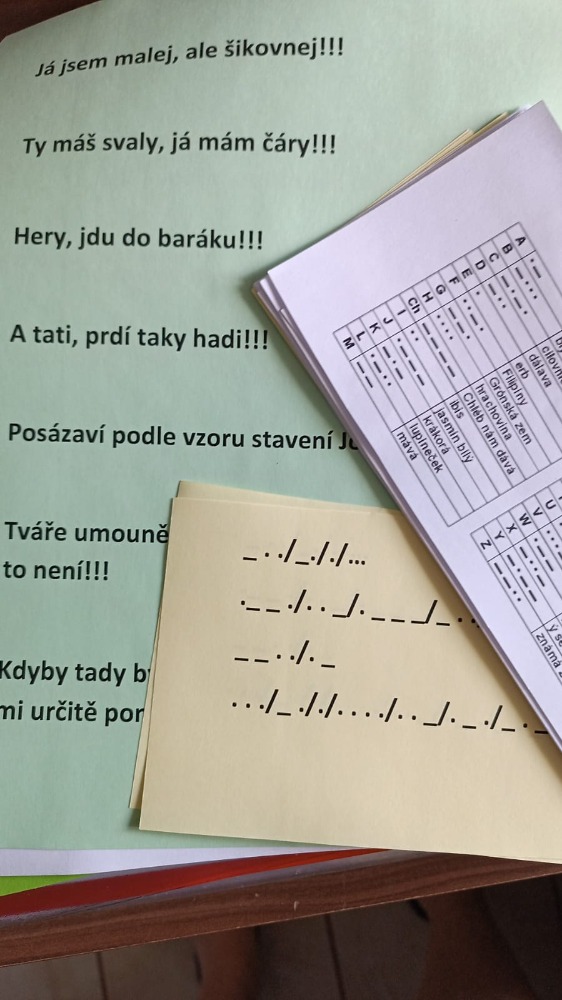 Já jsem malej, ale šikovnej!!!
Ty máš svaly, já mám čáry!!!
Hery, jdu do baráku!!!
A tati, prdí taky hadi!!!
Posázaví podle vzoru stavení
Tváře
to není!!!
Kdyby tady
mi určitě
_ . . / _ . / . / ...
. _ _ . / . . _ / . _ _ _ / _ . .
_ _ . . / . _
. . . / _ . / . / . . . . / . . _ / . _ . / _ . _
A . _
B _ . . .
C _ . _ .
D _ . . dálava
E . erb
F . . _ . Filipíny
G _ _ . Grónská zem
H . . . . hrachovina
Ch _ _ _ _ Chléb nám dává
I . . ibis
J . _ _ _ jasmín bílý
K _ . _ krákorá
L . _ . . lupíneček
M _ _ mává
U
V . . . _
W . _ _
X _ . . _
Y _ . _ _
Z _ _ . . známá